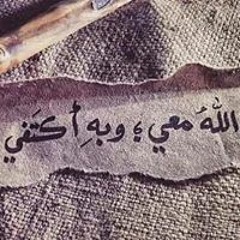 اللهُ معي ؛ وبهِ أكتَفي